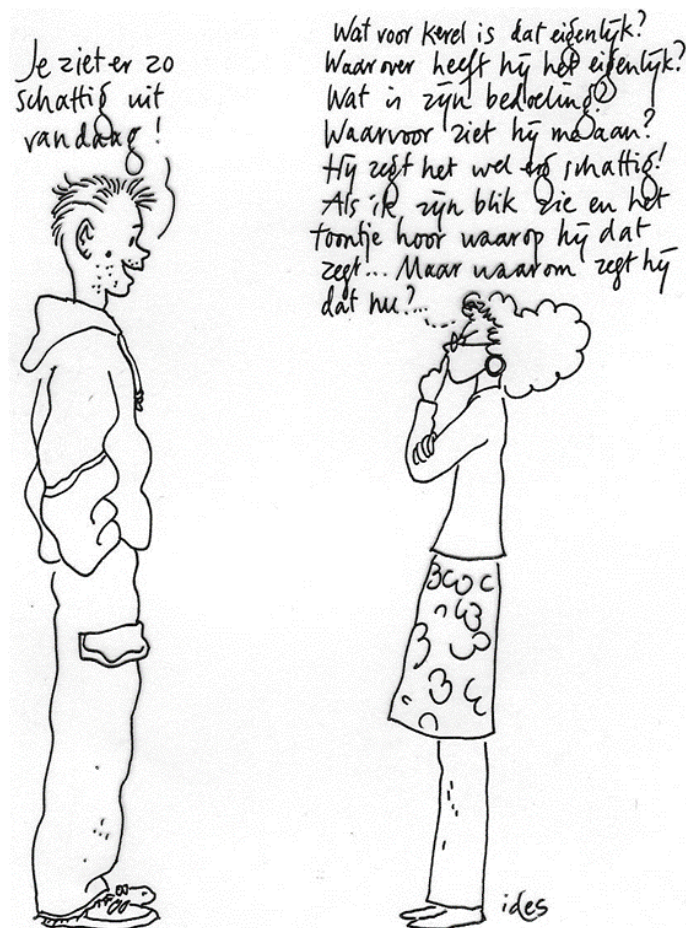 Je ziet er zo
schattig uit
vandaag!
Wat voor kerel is dat eigenlijk?
Waarover heeft hij het eigenlijk?
Wat is zijn bedoeling?
Waarvoor ziet hij me aan?
Hij zegt het wel erg schattig!
Als ik zijn blik zie en het
toontje hoor waarop hij dat
zegt... Maar waarom zegt hij
dat nu?...
ides